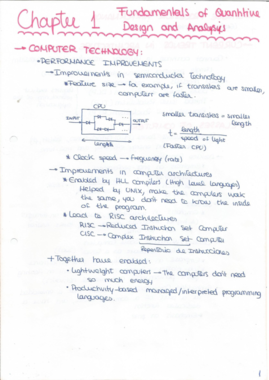 Chapter 1 Fundamentals of Quantitive
Design and Analysis
→ COMPUTER TECHNOLOGY:
• PERFORMANCE IMPROVEMENTS
→ Improvements in semiconductor technology
* Feature size → for example, if transistors are smaller,
computers are faster.
CPU
INPUT
OUTPUT
Length
smaller transistor = smaller
length
t = length / speed of light
(Faster CPU)
* Clock speed → Frequency (rate)
→ Improvements in computer architectures
* Enabled by HLL compilers (High level languages)
Helped by UNIX, make the compilers work
the same, you don't need to know the inside
of the program.
* Lead to RISC architectures
RISC → Reduced Instruction Set Computer
CISC → Complex Instruction Set Computer
Repertorio de instrucciones
→ Together have enabled:
• Lightweight computers → The computers don't need
so much energy
• Productivity-based managed/interpreted programming
languages.
1